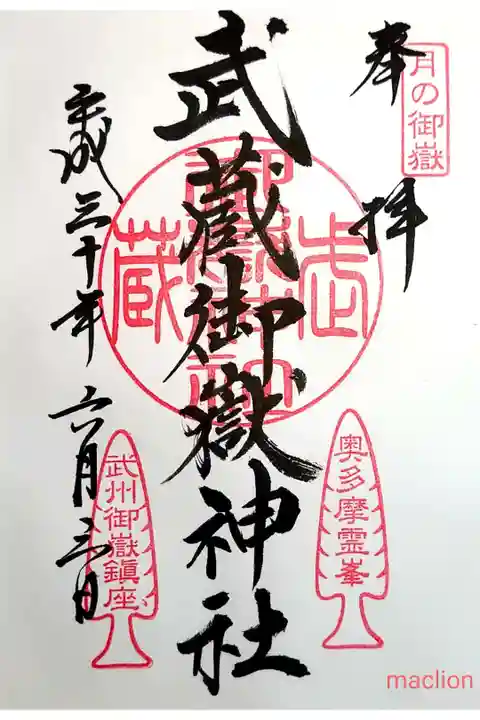 月の御嶽
奉拝
奥多摩霊峯
武蔵御嶽神社
武蔵
平成三十年六月三日
武州御嶽鎮座
maclion